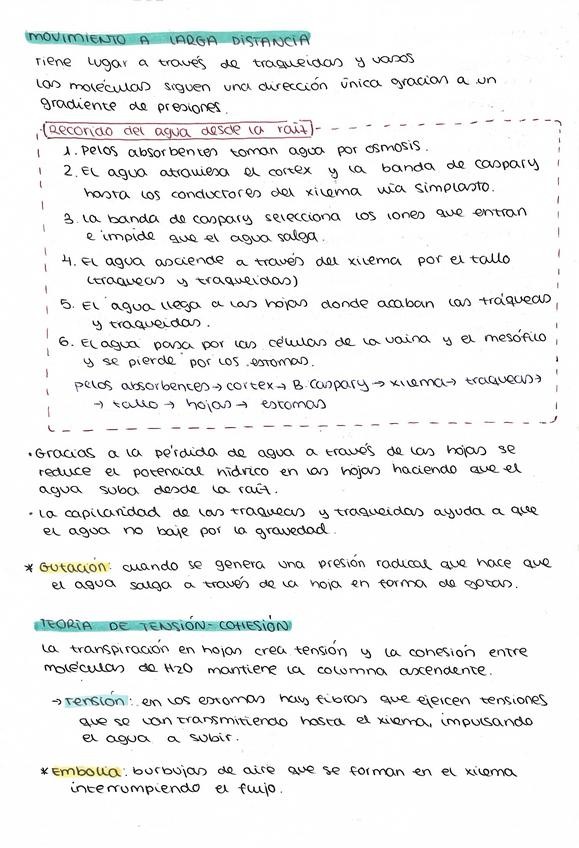 MOVIMIENTO A LARGA DISTANCIA
Tiene lugar a través de traqueidas y vasos
Las moléculas siguen una dirección única gracias a un
gradiente de presiones.
Recorrido del agua desde la raíz
1. Pelos absorbentes toman agua por osmosis.
2. El agua atraviesa el cortex y la banda de caspary
hasta los conductores del xilema vía simplasto.
3. La banda de caspary selecciona los iones que entran
e impide que el agua salga.
4. El agua asciende a través del xilema por el tallo
(traqueas y traqueidas)
5. El agua llega a las hojas donde acaban las tráqueas
y traqueidas.
6. El agua pasa por las células de la vaina y el mesófilo
y se pierde por los estomas.
pelos absorbentes → cortex → B. Caspary → xilema → traqueas →
→ tallo → hojas → estomas
· Gracias a la pérdida de agua a través de las hojas se
reduce el potencial hídrico en las hojas haciendo que el
agua suba desde la raíz.
· La capilaridad de las traqueas y traqueidas ayuda a que
el agua no baje por la gravedad.
* Gutación: cuando se genera una presión radical que hace que
el agua salga a través de la hoja en forma de gotas.
TEORÍA DE TENSIÓN-COHESIÓN
La transpiración en hojas crea tensión y la cohesión entre
moléculas de H2O mantiene la columna ascendente.
→ Tensión: en los estomas hay fibras que ejercen tensiones
que se van transmitiendo hasta el xilema, impulsando
el agua a subir.
* Embolia: burbujas de aire que se forman en el xilema
interrumpiendo el flujo.